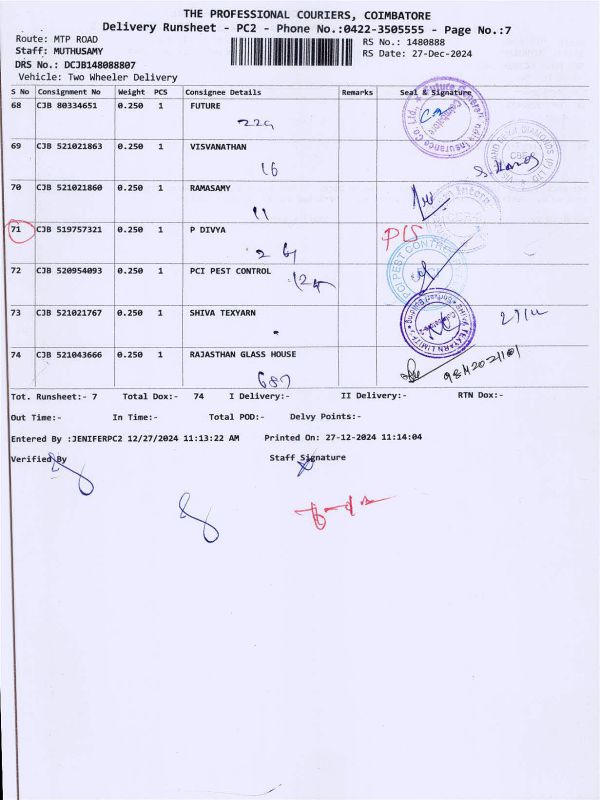 THE PROFESSIONAL COURIERS, COIMBATORE
Delivery Runsheet - PC2 - Phone No.:0422-3505555 - Page No.:7
Route: MTP ROAD RS No.: 1480888
Staff: MUTHUSAMY RS Date: 27-Dec-2024
DRS No.: DCJB148088807
Vehicle: Two Wheeler Delivery
S No Consignment No Weight PCS Consignee Details Remarks Seal & Signature
68 CJB 80334651 0.250 1 FUTURE
229
69 CJB 521021863 0.250 1 VISVANATHAN
16
70 CJB 521021860 0.250 1 RAMASAMY
11
71 CJB 519757321 0.250 1 P DIVYA
72 CJB 520954093 0.250 1 PCI PEST CONTROL
PCI PEST CONTR
73 CJB 521021767 0.250 1 SHIVA TEXYARN
74 CJB 521043666 0.250 1 RAJASTHAN GLASS HOUSE
687
Tot. Runsheet:- 7 Total Dox:- 74 I Delivery:- II Delivery:- RTN Dox:-
Out Time:- In Time:- Total POD:- Delvy Points:-
Entered By :JENIFERPC2 12/27/2024 11:13:22 AM Printed On: 27-12-2024 11:14:04
Verified By Staff Signature